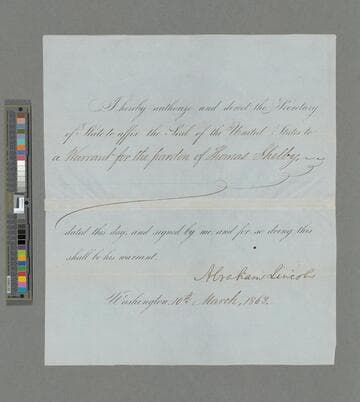 I hereby authorize and direct the Secretary
of State to affix the Seal of the United States to
a Warrant for the pardon of Thomas Shelby,
dated this day, and signed by me and for so doing this
shall be his warrant.
Abraham Lincoln
Washington, 10th March, 1863.